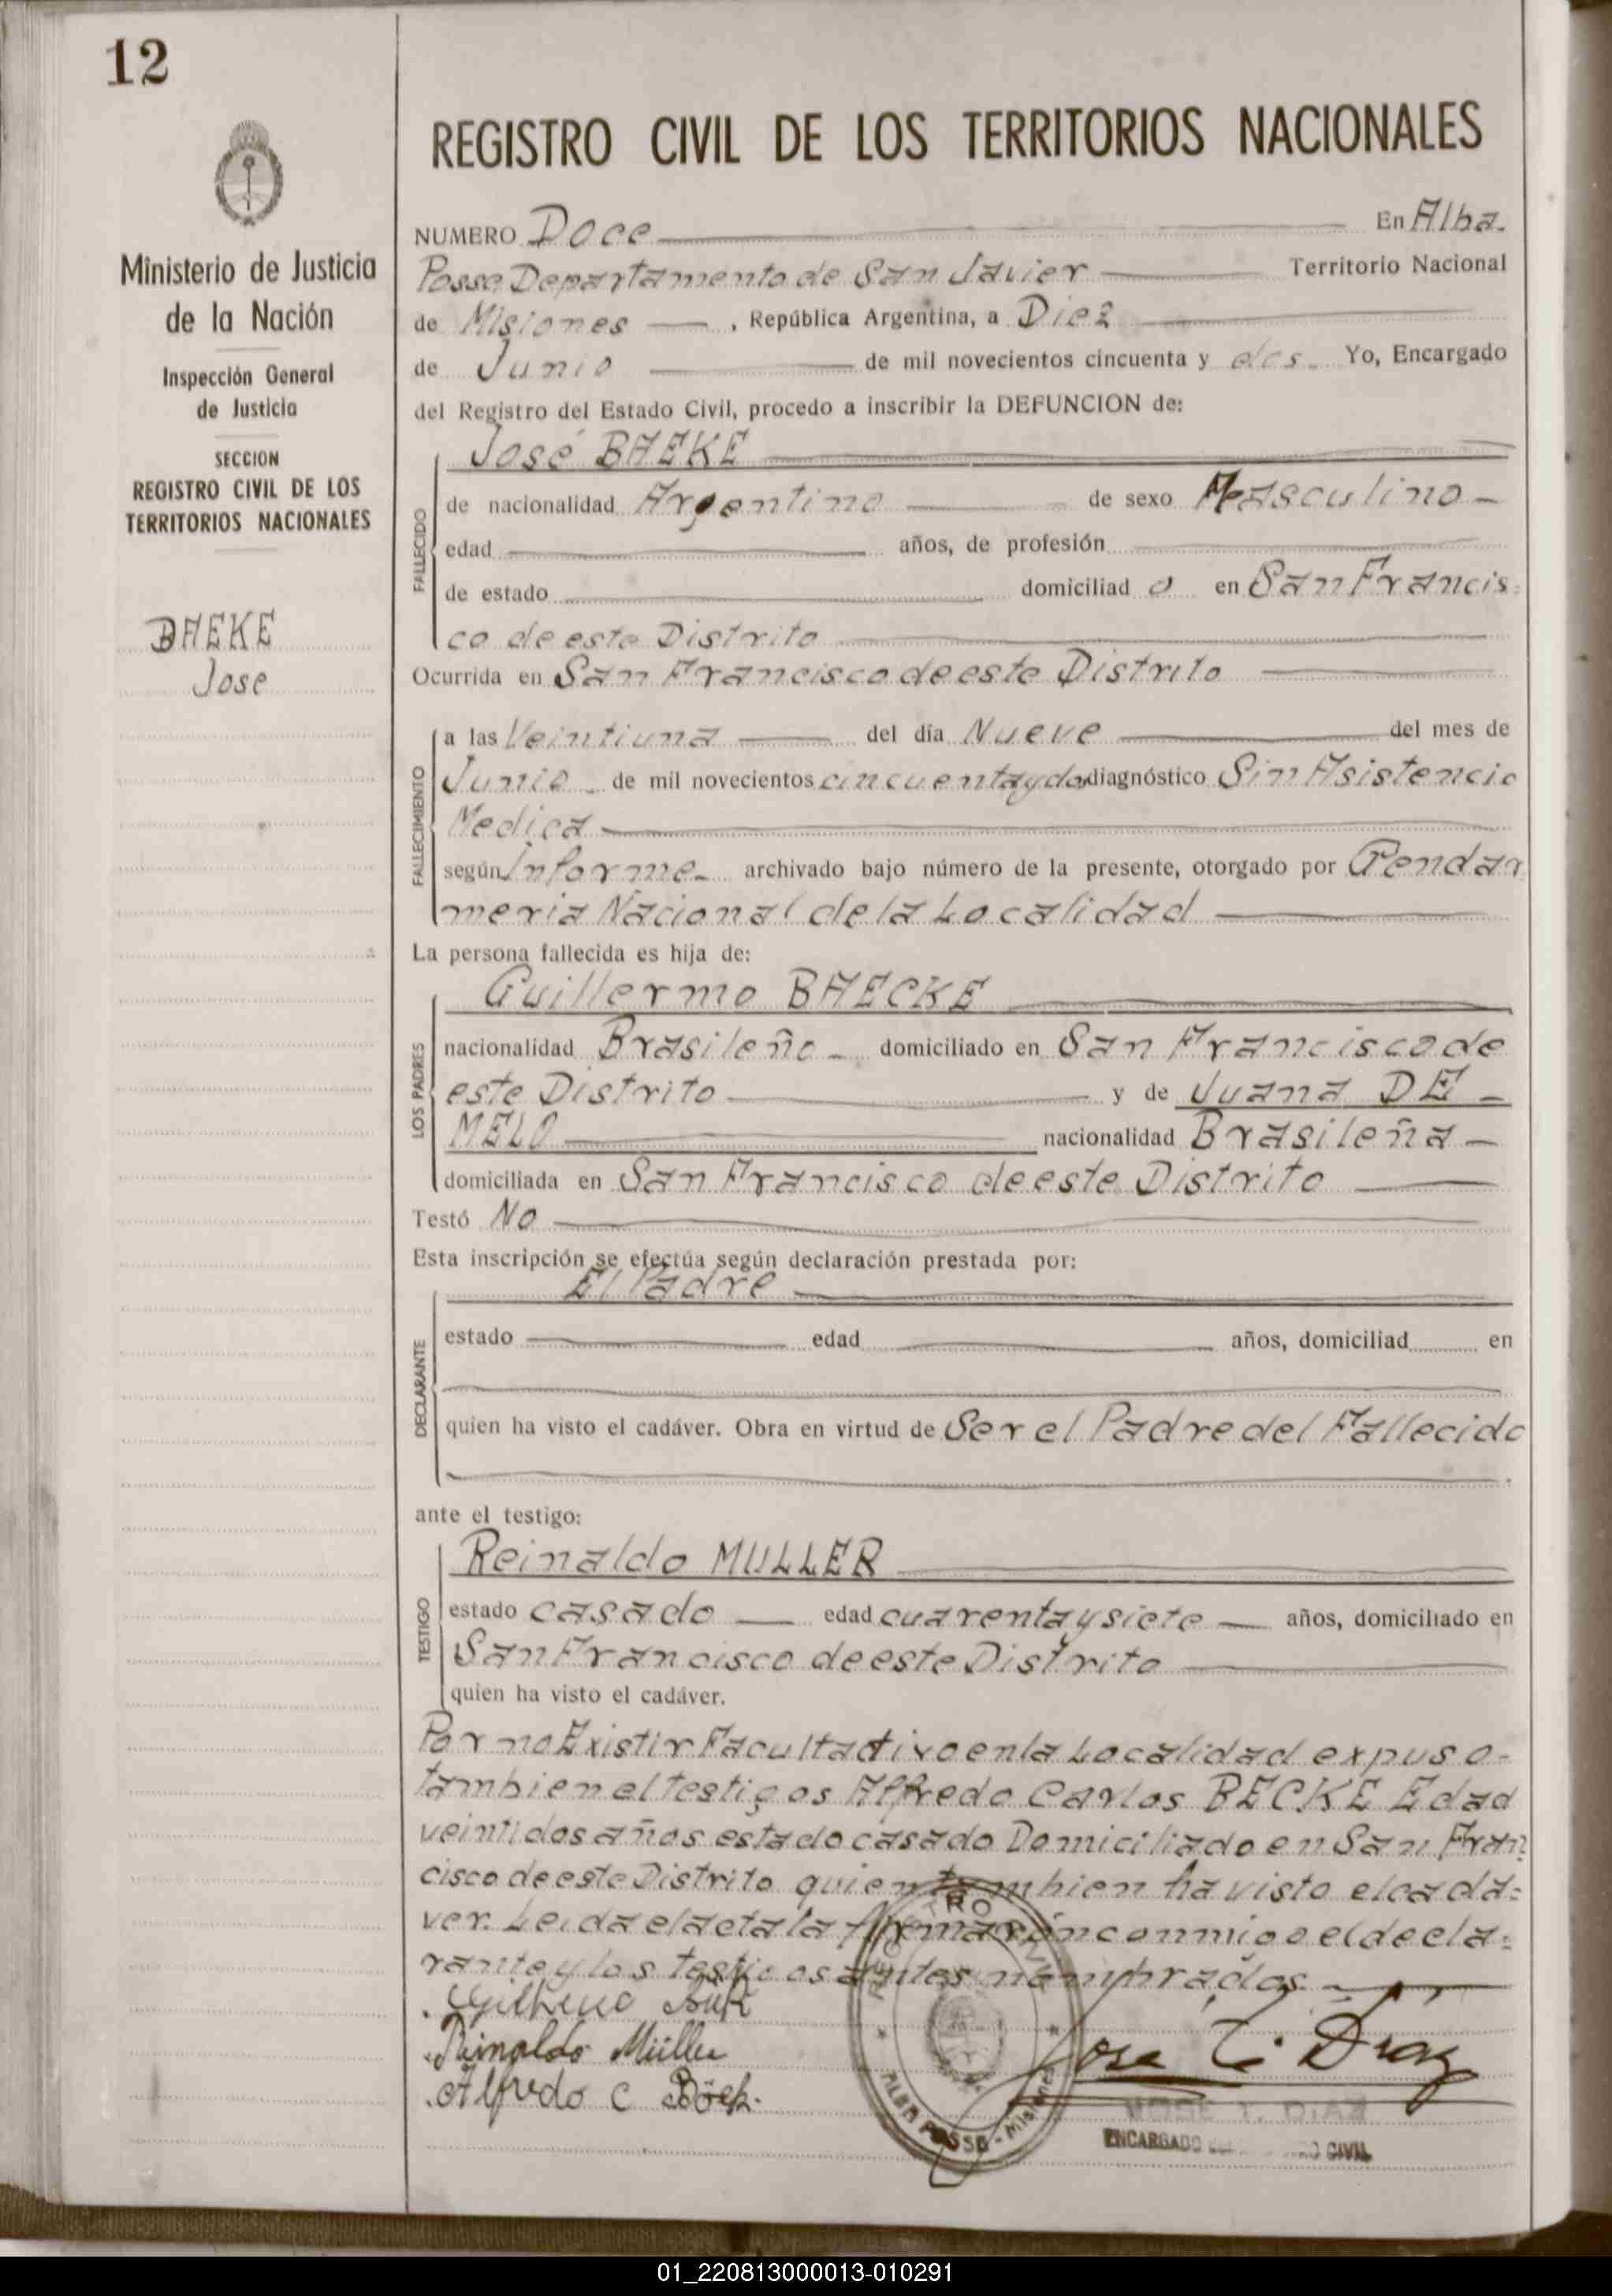 12
Ministerio de Justicia
de la Nación
Inspección General
de Justicia
SECCION
REGISTRO CIVIL DE LOS
TERRITORIOS NACIONALES
BAEKE
Jose
REGISTRO CIVIL DE LOS TERRITORIOS NACIONALES
NUMERO Doce En Alba.
Posse Departamento de San Javier Territorio Nacional
de Misiones , República Argentina, a Diez
de Junio de mil novecientos cincuenta y dos Yo, Encargado
del Registro del Estado Civil, procedo a inscribir la DEFUNCION de:
José BAEKE
FALLECIDO
de nacionalidad Argentino de sexo Masculino
edad años, de profesión
de estado domiciliad o en San Francis=
co de este Distrito
Ocurrida en San Francisco de este Distrito
FALLECIMIENTO
a las Veintiuna del día Nueve del mes de
Junio de mil novecientos cincuenta y dos diagnóstico Sin Asistencia
Medica
según Informe archivado bajo número de la presente, otorgado por Gendar
meria Nacional de la Localidad
La persona fallecida es hija de:
LOS PADRES
Guillermo BAECKE
nacionalidad Brasileño domiciliado en San Francisco de
este Distrito y de Juana DE
MELO nacionalidad Brasileña
domiciliada en San Francisco de este Distrito
Testó No
Esta inscripción se efectúa según declaración prestada por:
El Padre
DECLARANTE
estado edad años, domiciliad en
quien ha visto el cadáver. Obra en virtud de Ser el Padre del Fallecido
ante el testigo:
TESTIGO
Reinaldo MULLER
estado casado edad cuarenta y siete años, domiciliado en
San Francisco de este Distrito
quien ha visto el cadáver.
Por no Existir Facultativo en la Localidad expuso-
tambien el testigos Alfredo Carlos BECKE Edad
veintidos años estado casado Domiciliado en San Fran
cisco de este Distrito quien tambien ha visto el cadá=
ver. Leida el acta la firmarón conmigo el decla=
rante y los testigos antes nombrados
Reinaldo Müller
Alfredo C Böek.
José T. Díaz
ALBA POSSE - Misiones
JOSE T. DIAZ
ENCARGADO CIVIL
01_220813000013-010291